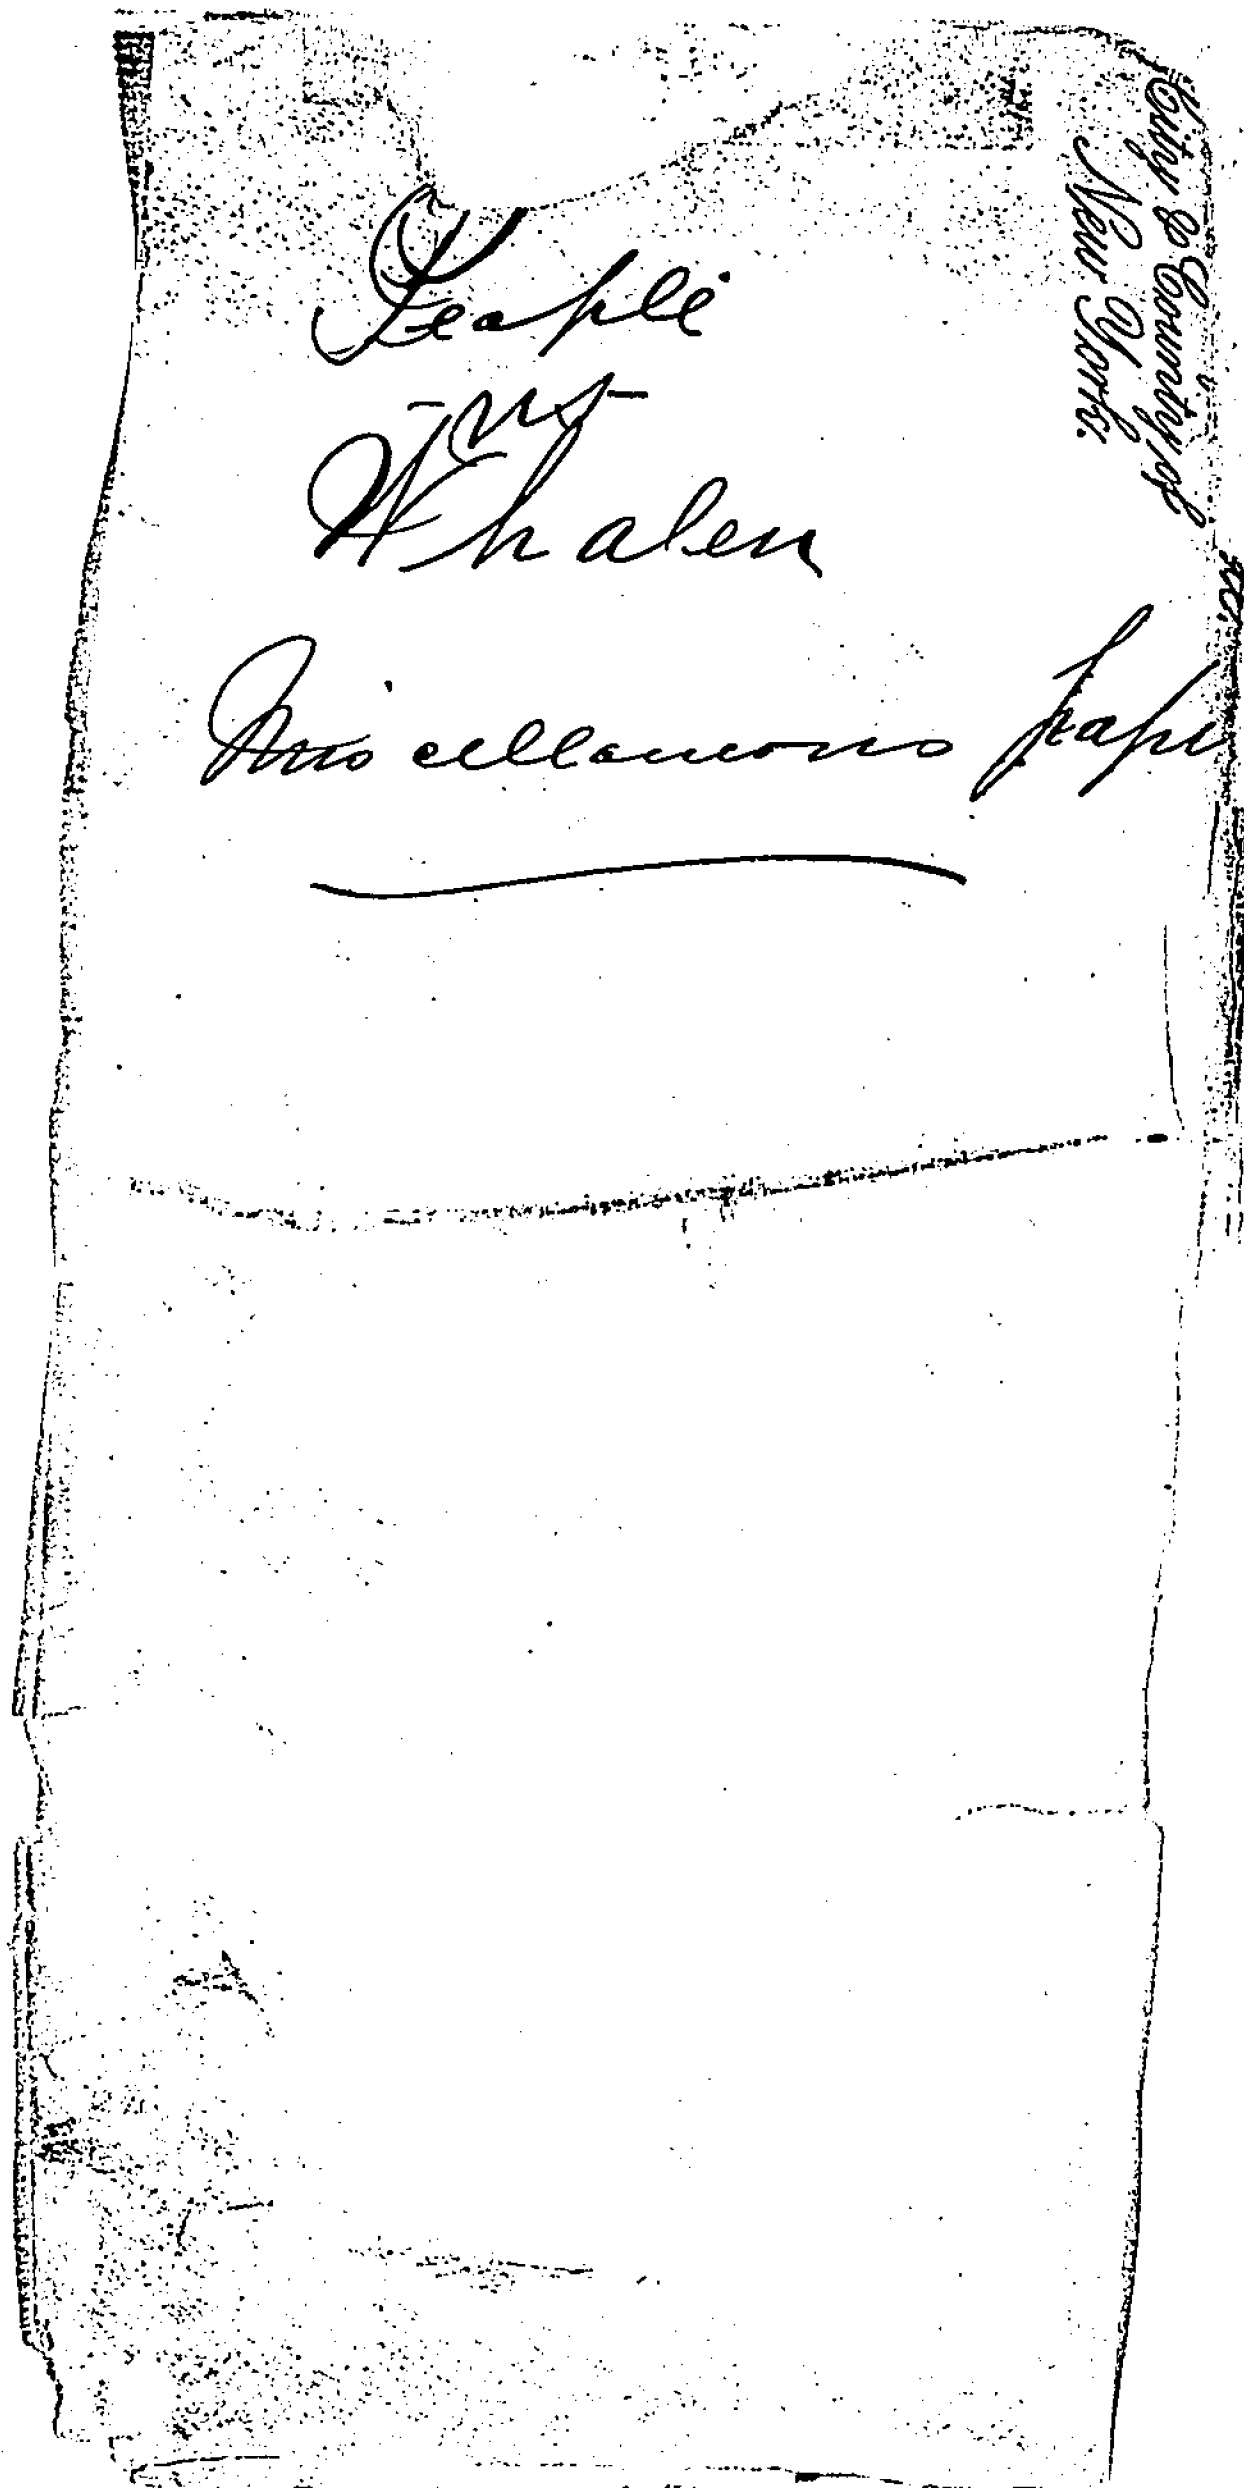 People
-vs-
Whalen
Miscellaneous Pape
City & County of
New York.
ss.